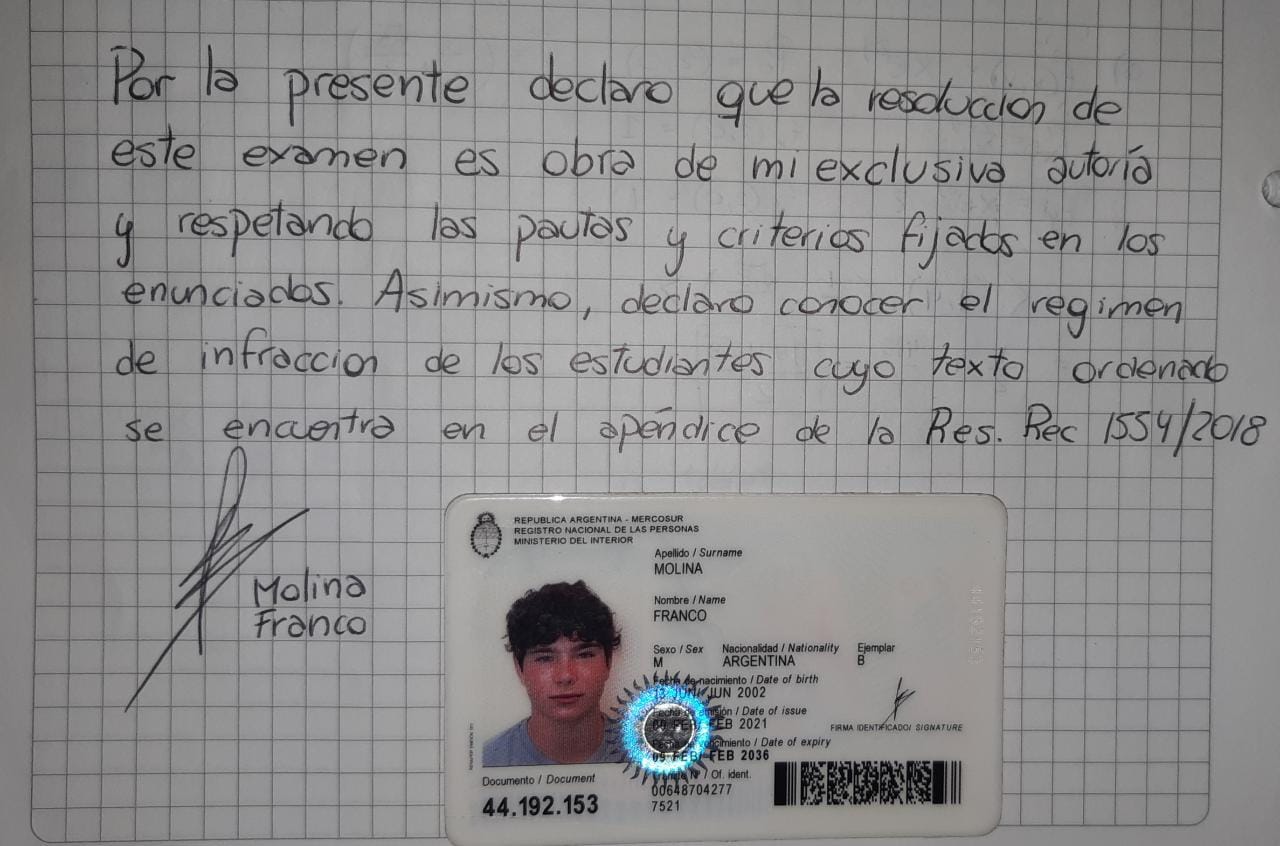 Por la presente declaro que la resoluccion de
este examen es obra de mi exclusiva autoría
y respetando las pautas y criterios fijados en los
enunciados. Asimismo, declaro conocer el regimen
de infraccion de los estudiantes cuyo texto ordenado
se encuentra en el apéndice de la Res. Rec 1554/2018
Molina
Franco
REPUBLICA ARGENTINA - MERCOSUR
REGISTRO NACIONAL DE LAS PERSONAS
MINISTERIO DEL INTERIOR
Apellido / Surname
MOLINA
Nombre / Name
FRANCO
Sexo / Sex Nacionalidad / Nationality Ejemplar
M ARGENTINA B
Fecha de nacimiento / Date of birth
JUN/ JUN 2002
/ Date of issue
FEB 2021
FIRMA IDENTIFICADO/ SIGNATURE
/ Date of expiry
09 FEB/ FEB 2036
/ Of. ident.
00648704277
7521
Documento / Document
44.192.153